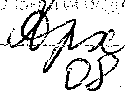 Apx
08